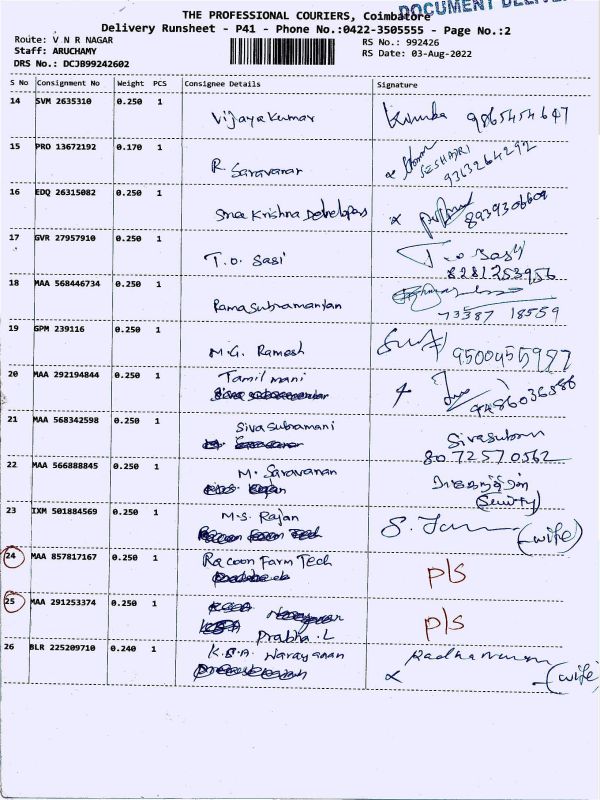 DOCUMENT
THE PROFESSIONAL COURIERS, Coimbatore
Delivery Runsheet - P41 - Phone No.:0422-3505555 - Page No.:2
Route: V N R NAGAR
RS No.: 992426
Staff: ARUCHAMY
RS Date: 03-Aug-2022
DRS No.: DCJB99242602
S No Consignment No Weight PCS Consignee Details Signature
14 SVM 2635310 0.250 1 Vijayakumar 9865454647
15 PRO 13672192 0.170 1 R Saravanan SESHADRI
9363264292
16 EDQ 26315082 0.250 1 Sree Krishna Developers 8939306609
17 GVR 27957910 0.250 1 T.O. Sasi T.O Sasi
8281253956
18 MAA 568446734 0.250 1 Ramasubramanian
73387 18559
19 GPM 239116 0.250 1 M.G. Ramesh 9500455987
20 MAA 292194844 0.250 1 Tamil mani 9486036586
21 MAA 568342598 0.250 1 Siva subramani Sivasubram
80 72570562
22 MAA 566888845 0.250 1 M. Saravanan
(Security)
23 IXM 501884569 0.250 1 M.S. Rajan (wife)
Racoon Farm Tech
24 MAA 857817167 0.250 1 Racoon Farm Tech P/S
25 MAA 291253374 0.250 1 P/S
Prabha.L
26 BLR 225209710 0.240 1 K.S.A. Narayanan
(wife)